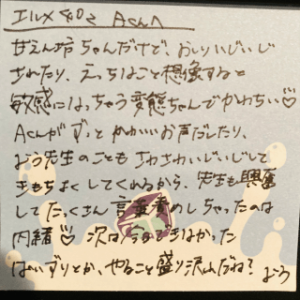 甘えん坊ちゃんだけど、おしりいじいじ
されたり、えっちなこと想像すると
敏感になっちゃう変態ちゃんでかわちい♡
Aくんがずっとかわいいお声だしたり、
よう先生のこともさわさわいじいじして
きもちよくしてくれるから、先生も興奮
してたっくさん言葉責めしちゃったのは
内緒♡ 次は今日できなかった
ぱいずりとか、やること盛り沢山だね? よう